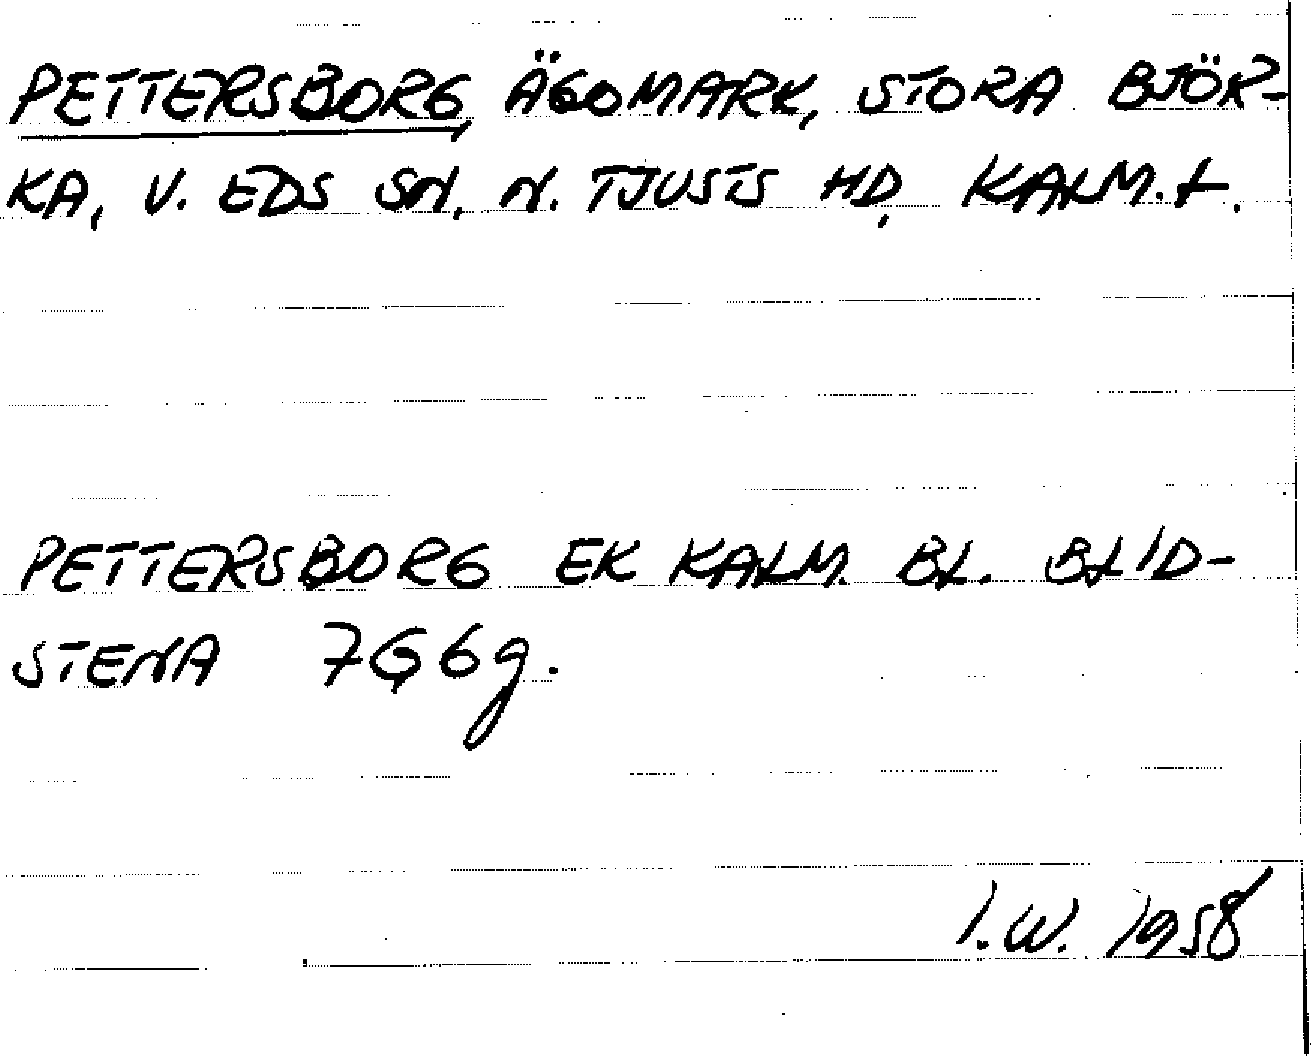 PETTERSBORG, ÄGOMARK, STORA BJÖR-
KA, V. EDS SN, N. TJUSTS HD, KALM. L.
PETTERSBORG EK KALM. BL. BLID-
STENA 7G6g.
I.W. 1958